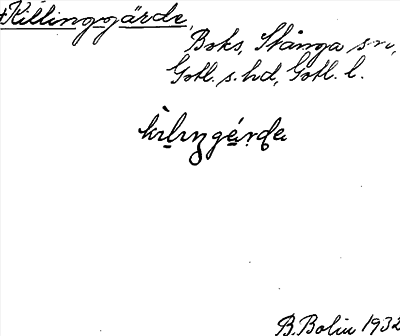 +Killinggärde,
Boks, Stånga sn,
Gotl. s. hd, Gotl. l.
kìlıŋgę́rdɐ
B. Bolin 1932